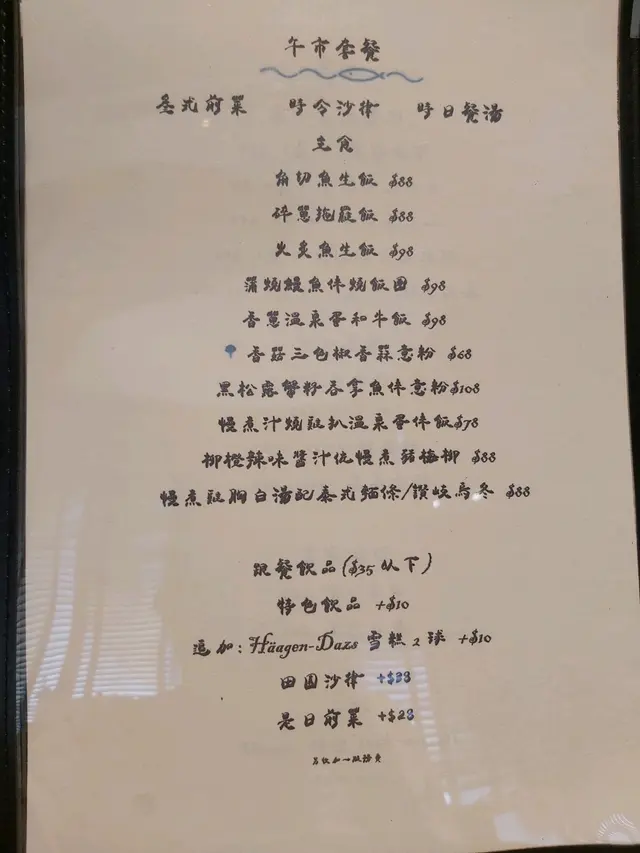 午市套餐
式前菜 時令沙律 時日餐湯
主食
角切魚生飯 $88
碎蔥拖羅飯 $88
火炙魚生飯 $98
蒲燒鰻魚伴燒飯團 $98
香蔥溫泉蛋和牛飯 $98
香菇三色椒香蒜意粉 $68
黑松露蟹籽吞拿魚伴意粉$108
慢煮汁燒雞扒溫泉蛋伴飯$78
柳橙辣味醬汁伴慢煮豬梅柳 $88
慢煮雞胸白湯配泰式麵條/讚岐烏冬 $88
跟餐飲品($35以下)
特色飲品 +$10
追加: Häagen-Dazs 雪糕 2 球 +$10
田園沙律 +$28
是日前菜 +$28
另收加一服務費